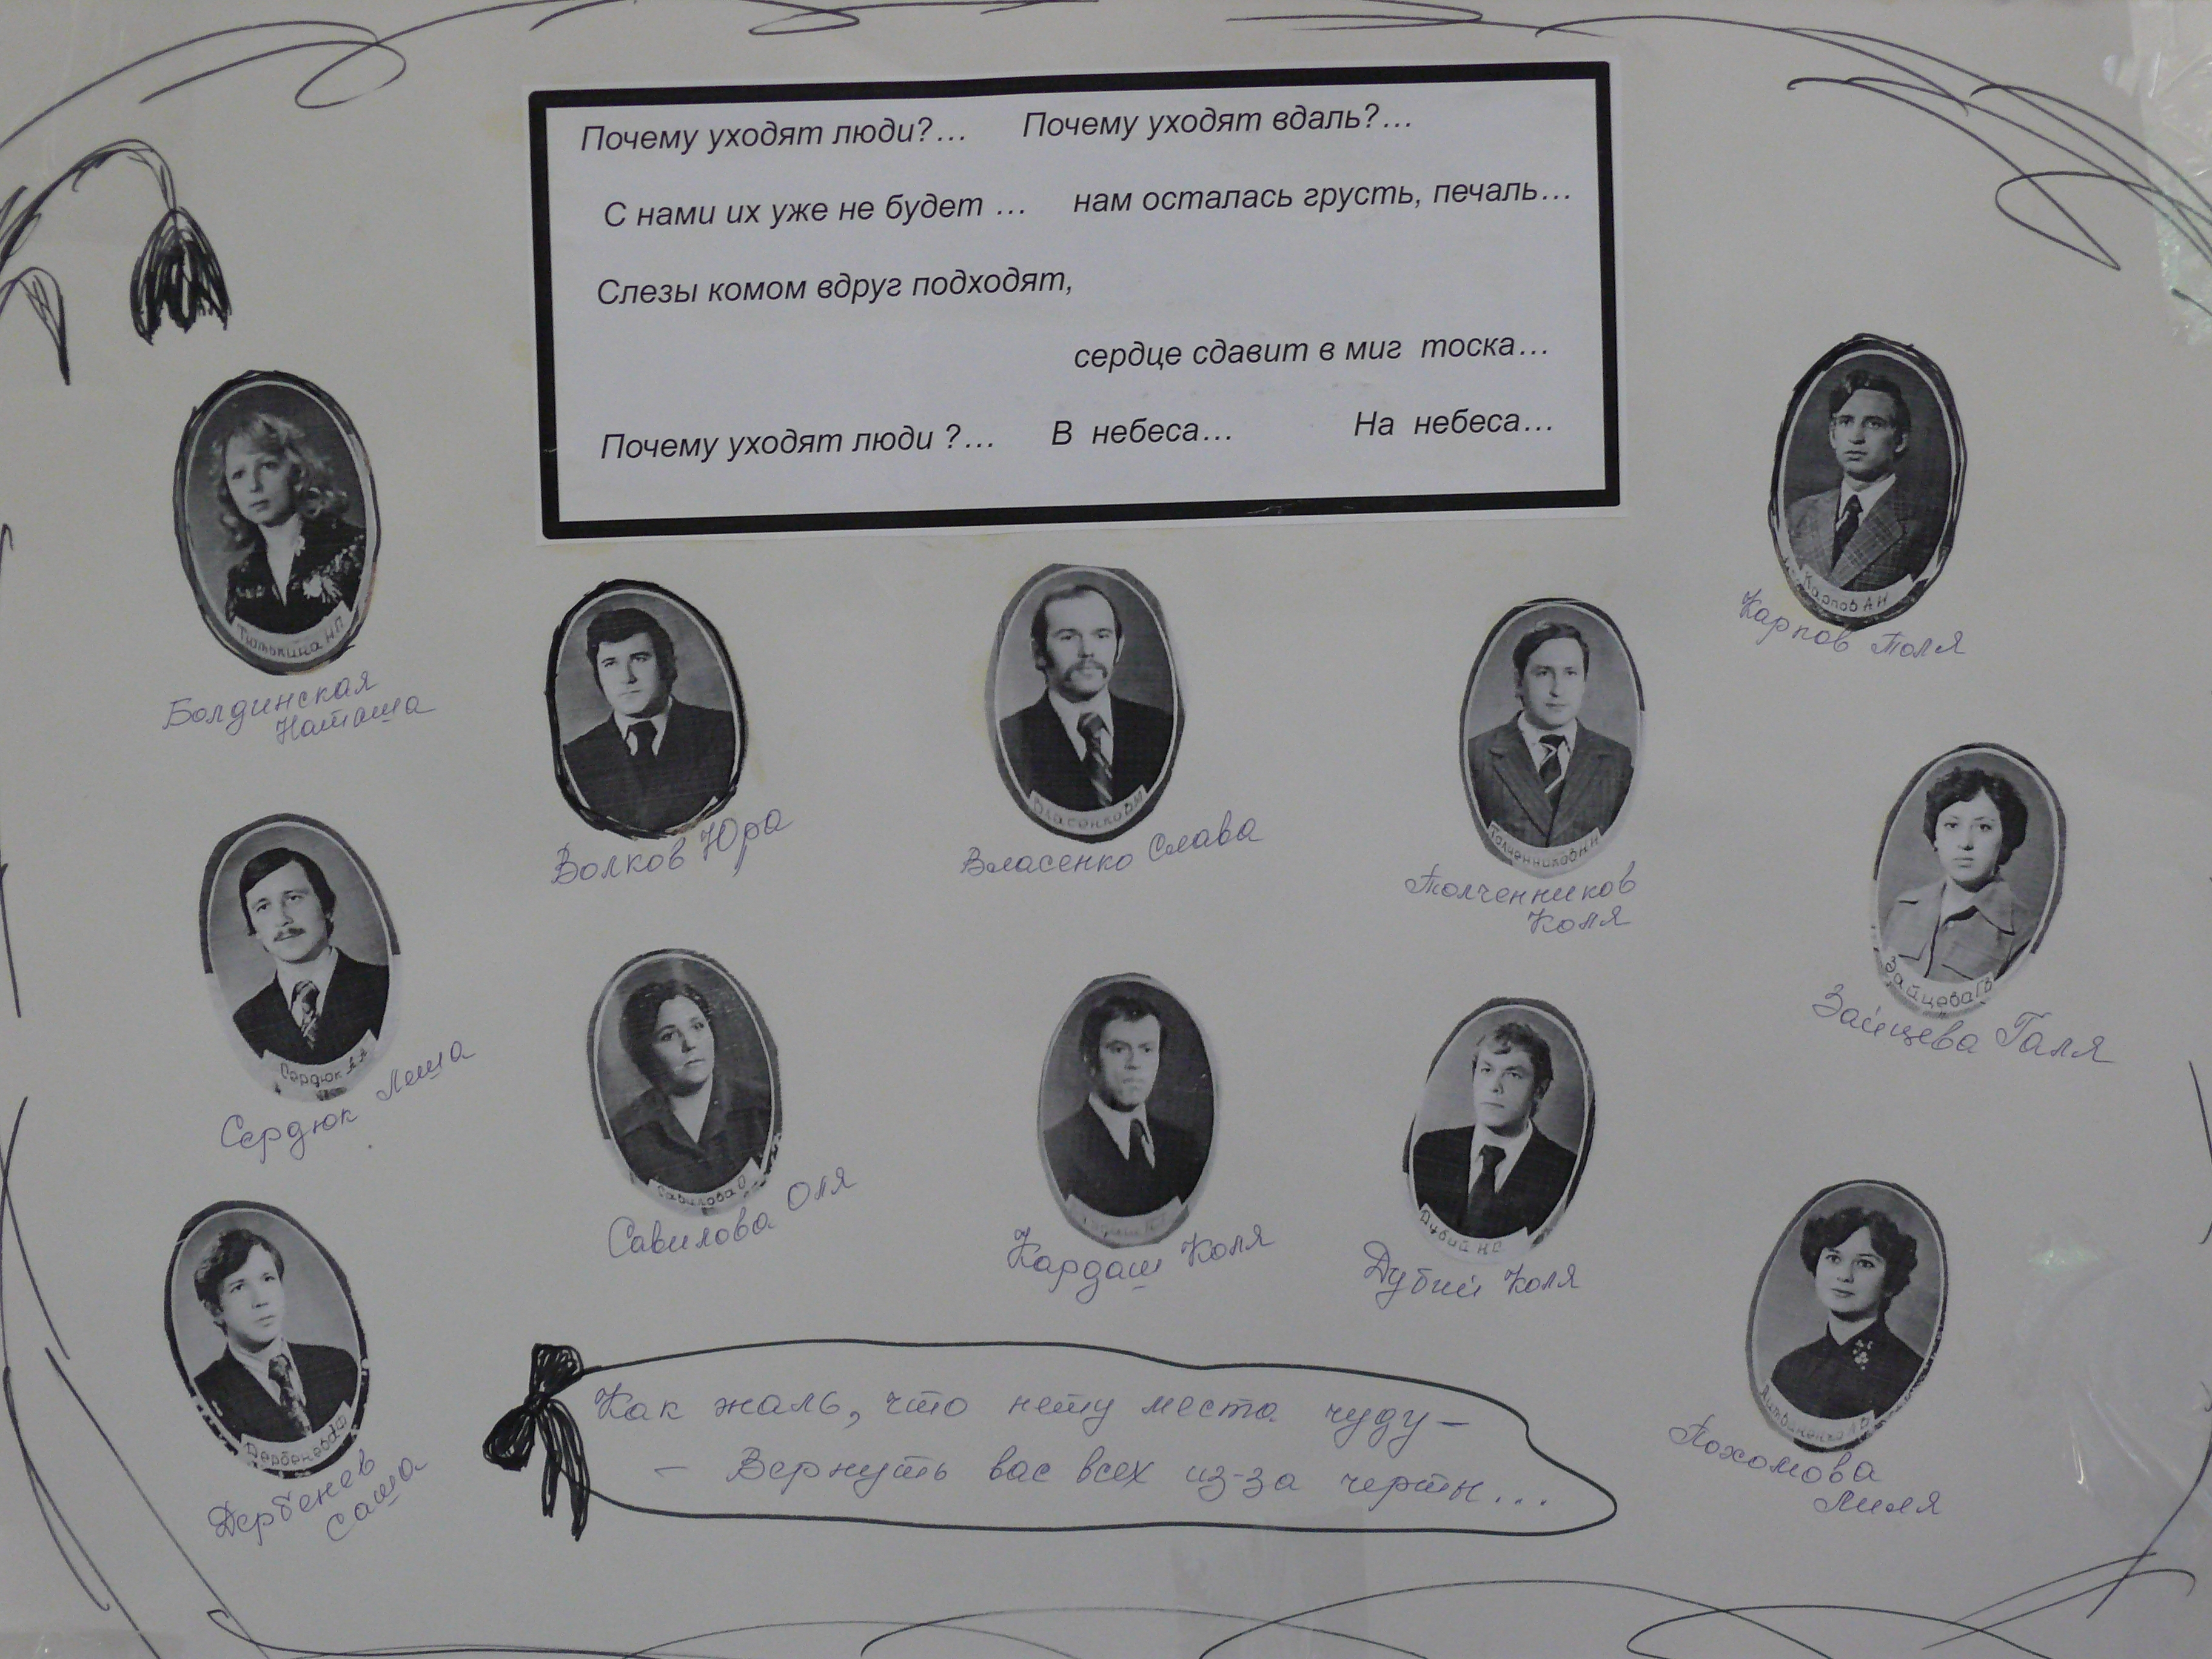 Почему уходят люди?... Почему уходят вдаль?...
С нами их уже не будет ... нам осталась грусть, печаль...
Слезы комом вдруг подходят,
сердце сдавит в миг тоска...
Почему уходят люди ?... В небеса... На небеса...
Карпов А Н
Карпов Толя
Тютькина Н П
Болдинская
Наташа
Волков Юра
Власенко В М
Власенко Слава
Толченников Н Н
Толченников
Коля
Зайцева Г В
Зайцева Галя
Сердюк А А
Сердюк Леша
Савилова О
Савилова Оля
Кардаш Коля
Дубий Н С
Дубий Коля
Дербенев А Ф
Дербенев
Саша
Литвиненко Л
Пахомова
Лиля
Как жаль, что нету места чуду –
– Вернуть вас всех из-за черты...